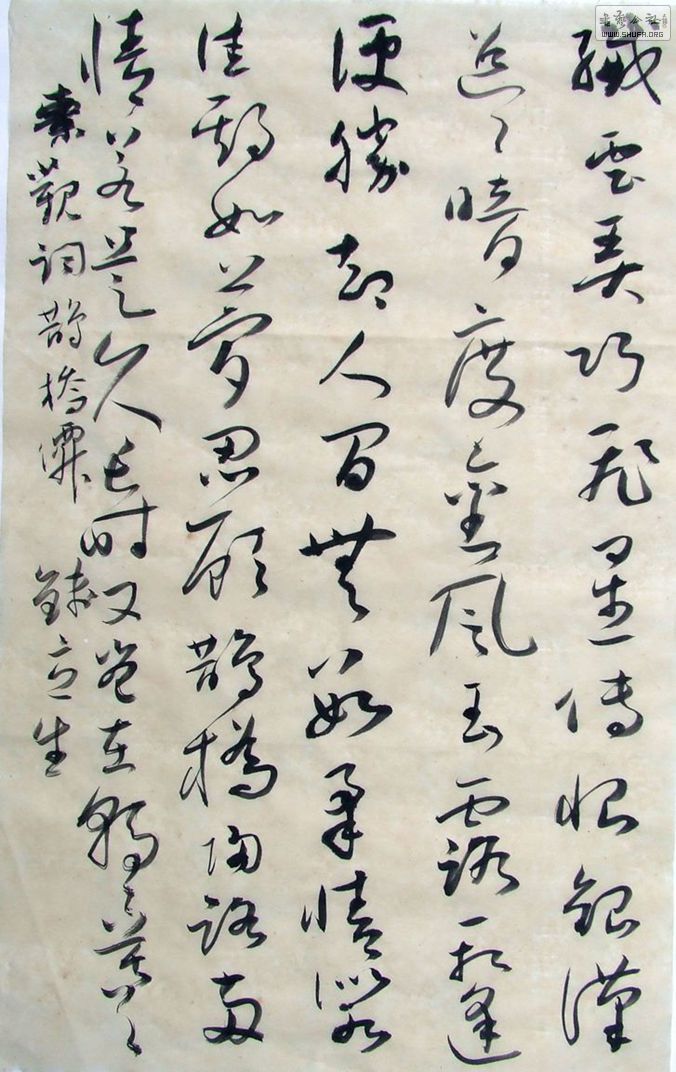 纖雲弄巧飛星傳恨銀漢
迢〻暗度金風玉露一相逢
便勝却人間無數柔情似水
佳期如夢忍顧鵲橋歸路兩
情若是久長時又豈在朝〻暮〻
秦觀詞鵲橋僊
WWW.SHUFA.ORG